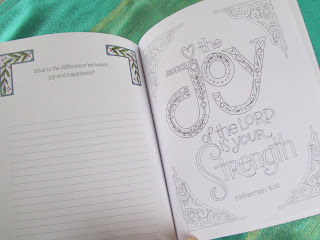 What is the difference between
joy and happiness?
the
Joy
of the LORD
is YOUR
Strength
Nehemiah 8:10